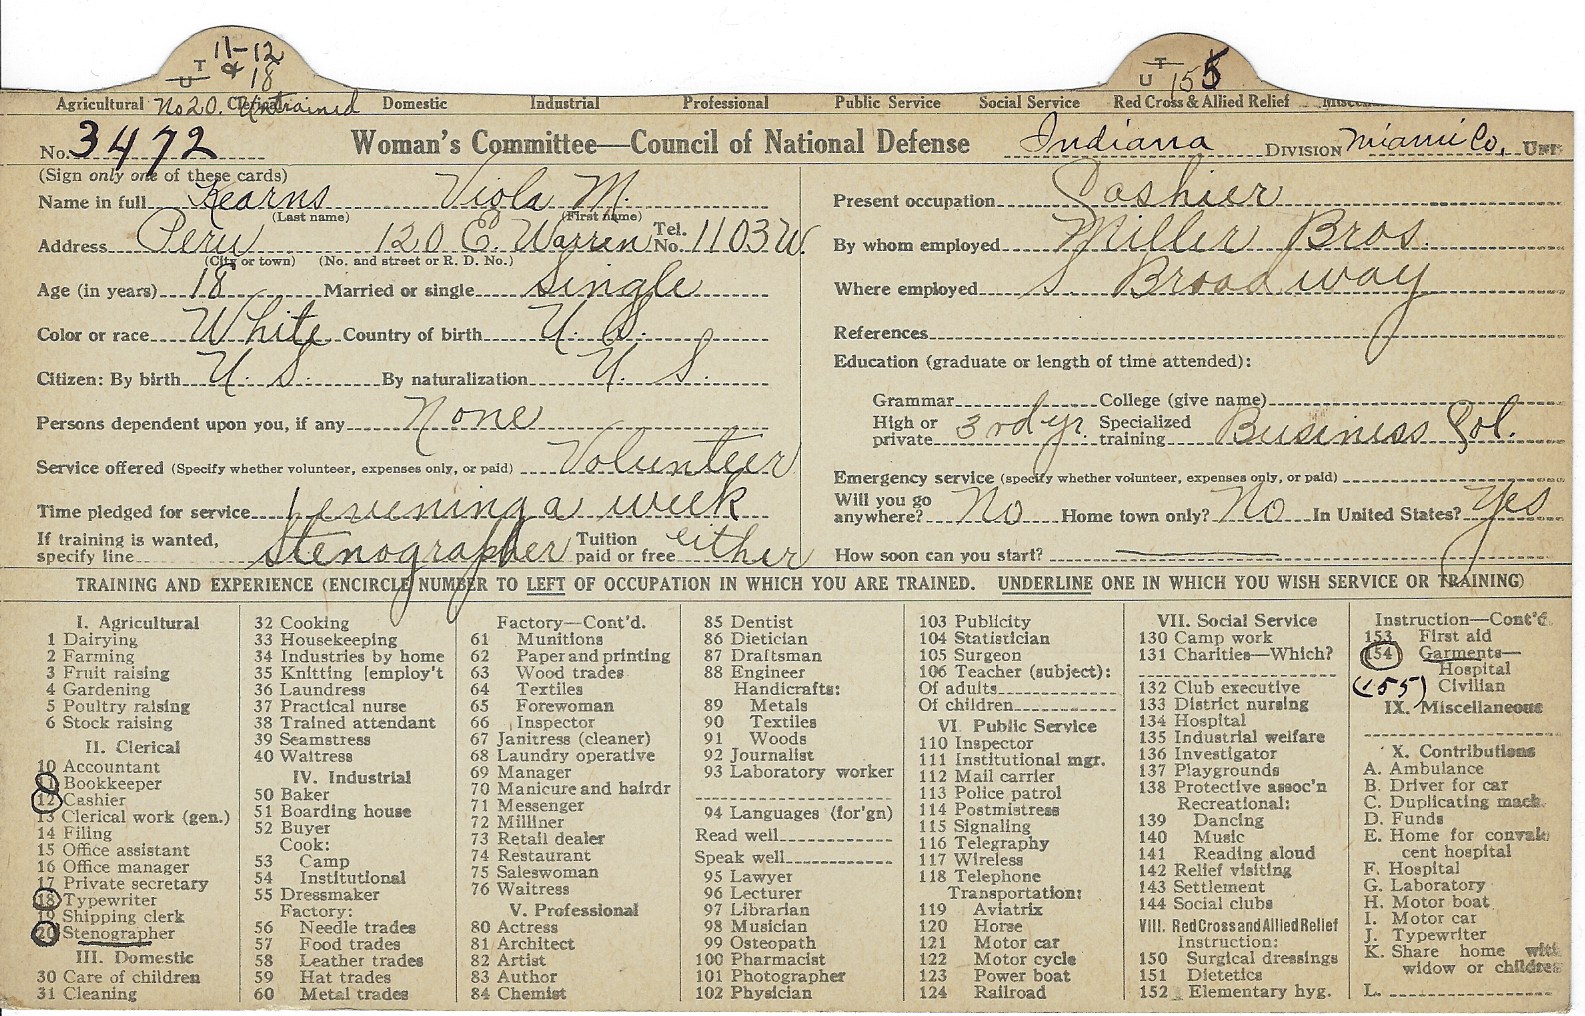 11-12
T & 18
U
T
U 155
Agricultural No 20. Clerical Untrained Domestic Industrial Professional Public Service Social Service Red Cross & Allied Relief
No. 3472 Woman's Committee—Council of National Defense Indiana DIVISION Miami Co. UNIT
(Sign only one of these cards)
Name in full Kearns Viola M.
(Last name) (First name)
Address Peru 120 E. Warren Tel. No. 1103W
(City or town) (No. and street or R. D. No.)
Age (in years) 18 Married or single Single
Color or race White Country of birth U. S.
Citizen: By birth U. S. By naturalization U. S.
Persons dependent upon you, if any None
Service offered (Specify whether volunteer, expenses only, or paid) Volunteer
Time pledged for service 1 evening a week
If training is wanted, specify line Stenographer Tuition paid or free either
Present occupation Cashier
By whom employed Miller Bros.
Where employed S. Broadway
References
Education (graduate or length of time attended):
Grammar College (give name)
High or private 3rd yr. Specialized training Business Col.
Emergency service (specify whether volunteer, expenses only, or paid)
Will you go anywhere? No Home town only? No In United States? Yes
How soon can you start?
TRAINING AND EXPERIENCE (ENCIRCLE NUMBER TO LEFT OF OCCUPATION IN WHICH YOU ARE TRAINED. UNDERLINE ONE IN WHICH YOU WISH SERVICE OR TRAINING)
I. Agricultural
1 Dairying
2 Farming
3 Fruit raising
4 Gardening
5 Poultry raising
6 Stock raising
II. Clerical
10 Accountant
11 Bookkeeper
12 Cashier
13 Clerical work (gen.)
14 Filing
15 Office assistant
16 Office manager
17 Private secretary
18 Typewriter
19 Shipping clerk
20 Stenographer
III. Domestic
30 Care of children
31 Cleaning
32 Cooking
33 Housekeeping
34 Industries by home
35 Knitting [employ't
36 Laundress
37 Practical nurse
38 Trained attendant
39 Seamstress
40 Waitress
IV. Industrial
50 Baker
51 Boarding house
52 Buyer
Cook:
53 Camp
54 Institutional
55 Dressmaker
Factory:
56 Needle trades
57 Food trades
58 Leather trades
59 Hat trades
60 Metal trades
Factory—Cont'd.
61 Munitions
62 Paper and printing
63 Wood trades
64 Textiles
65 Forewoman
66 Inspector
67 Janitress (cleaner)
68 Laundry operative
69 Manager
70 Manicure and hairdr
71 Messenger
72 Milliner
73 Retail dealer
74 Restaurant
75 Saleswoman
76 Waitress
V. Professional
80 Actress
81 Architect
82 Artist
83 Author
84 Chemist
85 Dentist
86 Dietician
87 Draftsman
88 Engineer
Handicrafts:
89 Metals
90 Textiles
91 Woods
92 Journalist
93 Laboratory worker
94 Languages (for'gn)
Read well
Speak well
95 Lawyer
96 Lecturer
97 Librarian
98 Musician
99 Osteopath
100 Pharmacist
101 Photographer
102 Physician
103 Publicity
104 Statistician
105 Surgeon
106 Teacher (subject):
Of adults
Of children
VI. Public Service
110 Inspector
111 Institutional mgr.
112 Mail carrier
113 Police patrol
114 Postmistress
115 Signaling
116 Telegraphy
117 Wireless
118 Telephone
Transportation:
119 Aviatrix
120 Horse
121 Motor car
122 Motor cycle
123 Power boat
124 Railroad
VII. Social Service
130 Camp work
131 Charities—Which?
132 Club executive
133 District nursing
134 Hospital
135 Industrial welfare
136 Investigator
137 Playgrounds
138 Protective assoc'n
Recreational:
139 Dancing
140 Music
141 Reading aloud
142 Relief visiting
143 Settlement
144 Social clubs
VIII. Red Cross and Allied Relief
Instruction:
150 Surgical dressings
151 Dietetics
152 Elementary hyg.
Instruction—Cont'd.
153 First aid
154 Garments—
Hospital
(155) Civilian
IX. Miscellaneous
X. Contributions
A. Ambulance
B. Driver for car
C. Duplicating mach.
D. Funds
E. Home for convales
cent hospital
F. Hospital
G. Laboratory
H. Motor boat
I. Motor car
J. Typewriter
K. Share home with
widow or children
L.